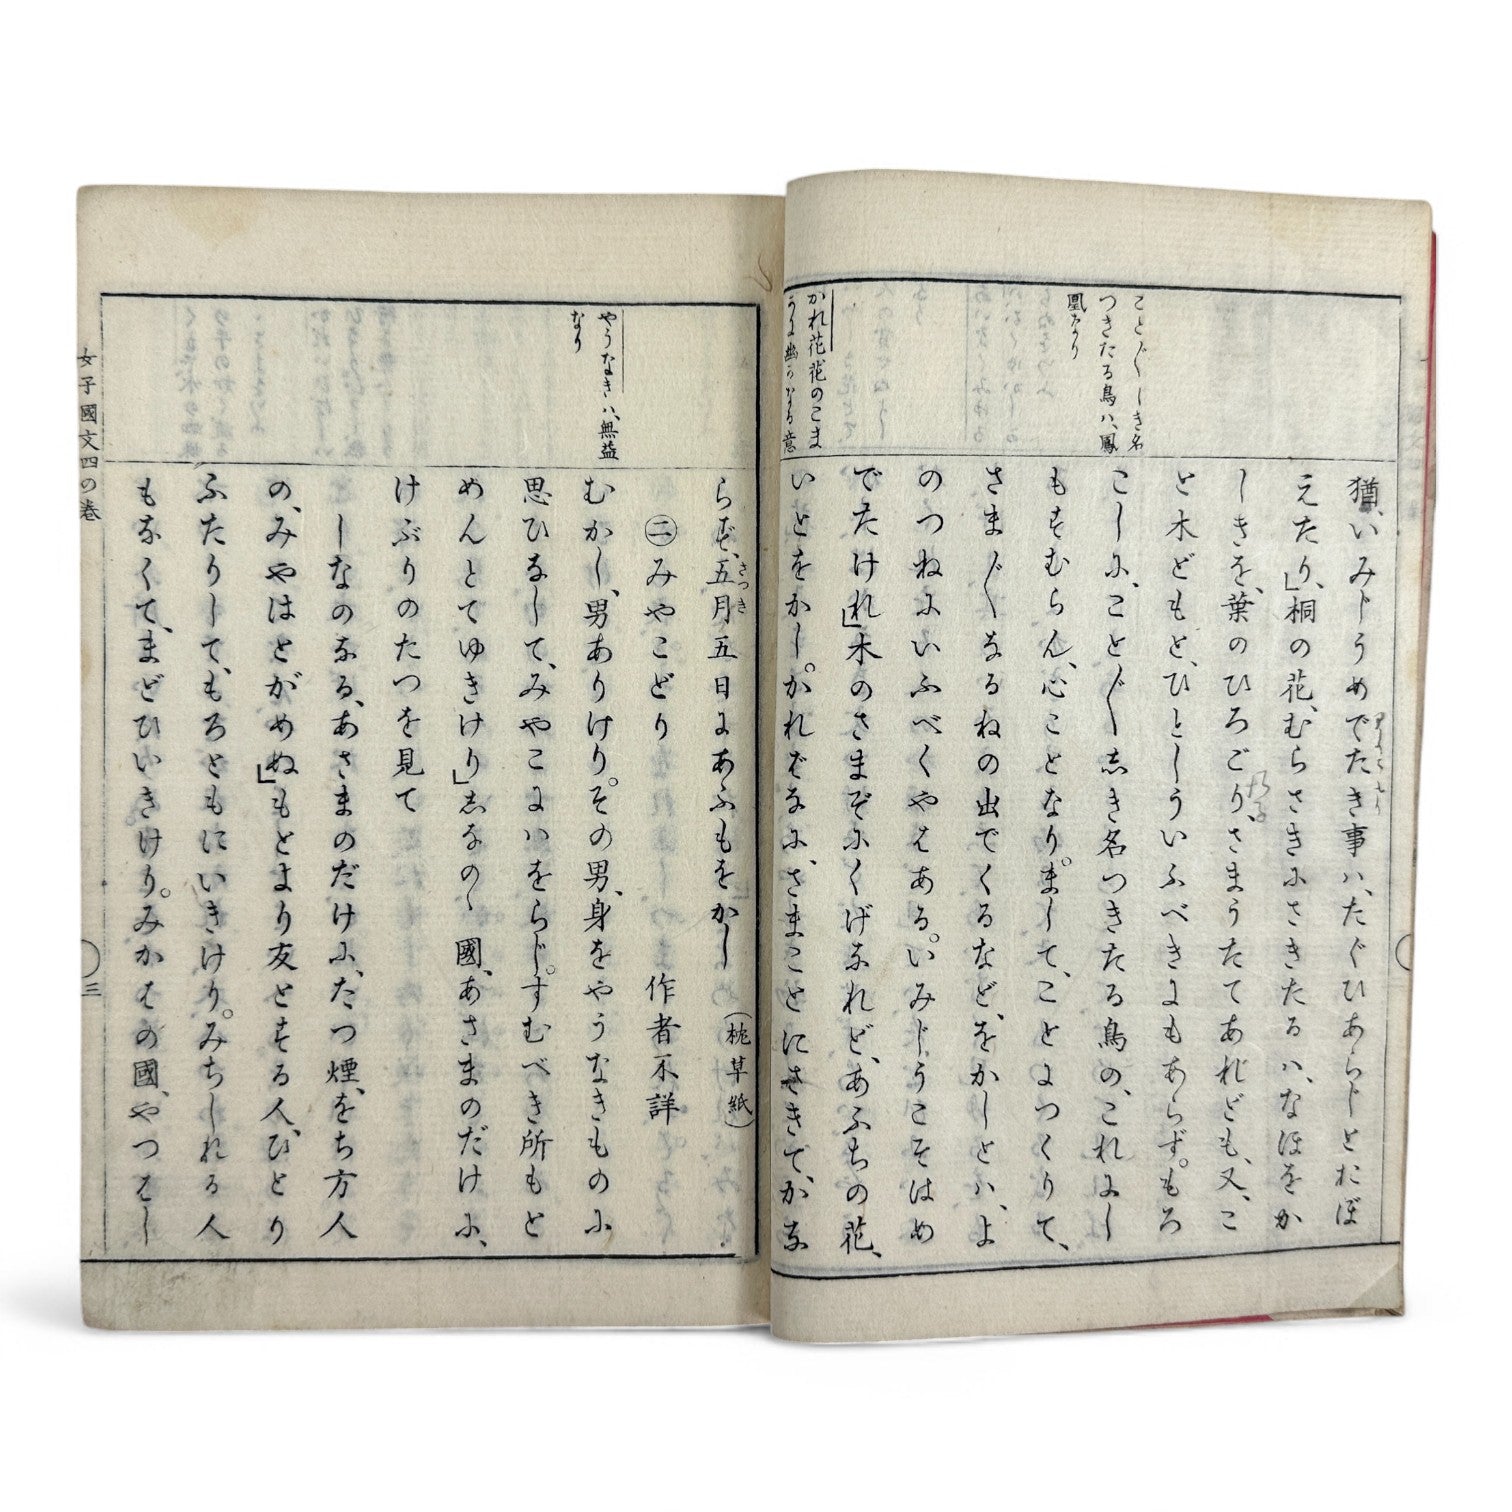 こと〴〵しき名
つきたる鳥ハ、鳳
凰なり
かれ花花のこま
猶、いみじうめでたき事ハ、たぐひあらじとおぼ
えたり」桐の花、むらさきにさきたるハ、なほをか
しきを、葉のひろごり、さまうたてあれども、又、こ
と木どもと、ひとしういふべきにもあらず。もろ
こしに、こと〴〵しき名つきたる鳥の、これにし
もすむらん、心ことなり。まして、ことにつくりて、
さま〴〵なるねの出でくるなど、をかしとハ、よ
のつねにいふべくやはある。いみじうこそはめ
でたけれ」木のさまぞにくげなれど、あふちの花、
いとをかし。かればなに、さまことにさきて、かな
やうなきハ、無益
なり
らず、五月五日にあふもをかし(枕草紙)
さつき
㊁みやこどり 作者不詳
むかし、男ありけり。その男、身をやうなきものに
思ひなして、みやこにハをらじ。すむべき所もと
めんとてゆきけり」志なのゝ國、あさまのだけに、
けぶりのたつを見て
しなのなる、あさまのだけに、たつ煙、をち方人
の、みやはとがめぬ」もとより友とする人、ひとり
ふたりして、もろともにいきけり。みちしれる人
もなくて、まどひいきけり。みかはの國、やつはし
女子國文四の巻
三